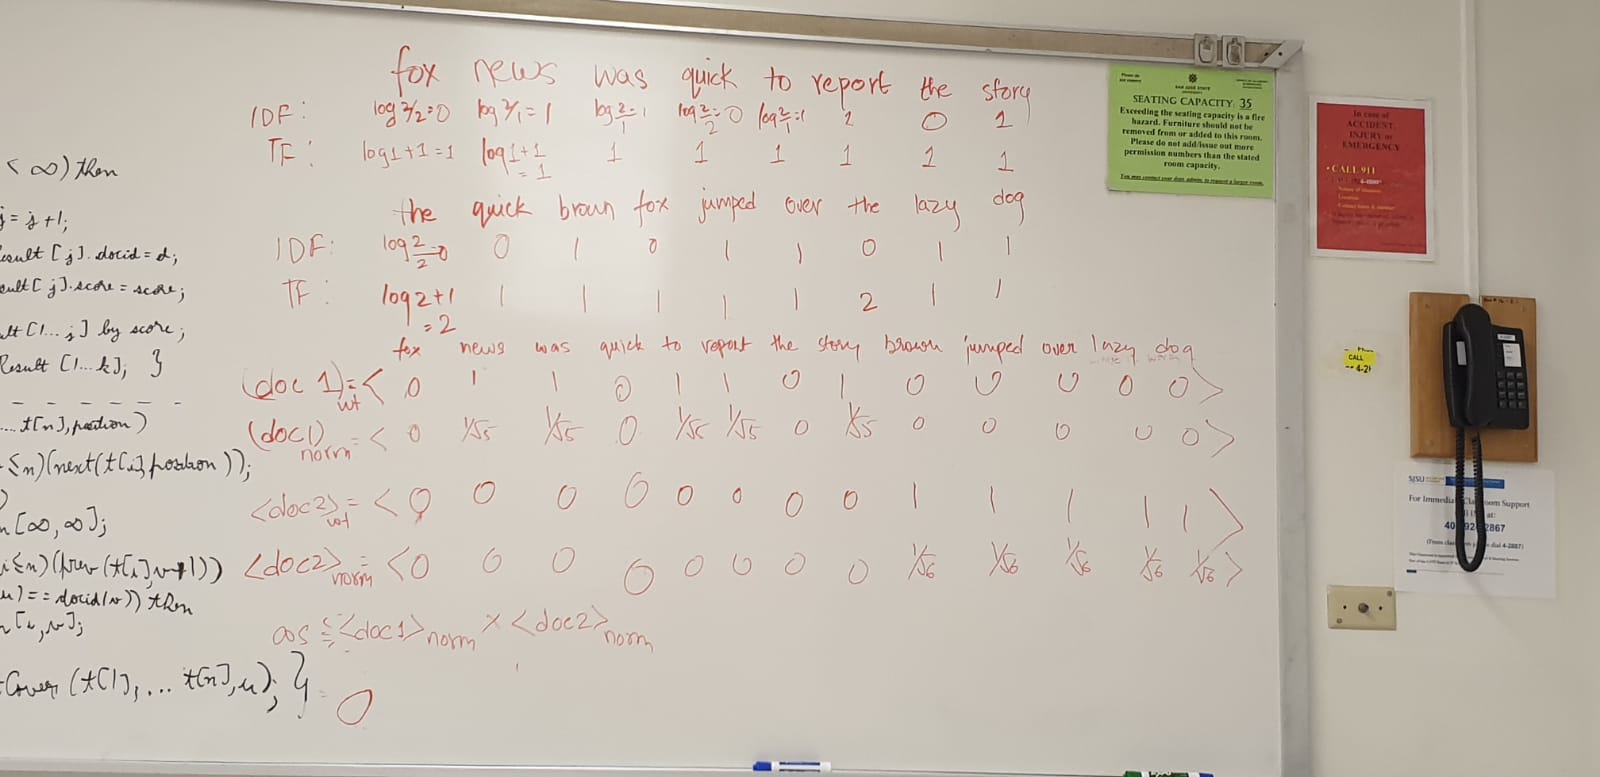 fox news was quick to report the story
IDF: log 2/2=0 log 2/1=1 log 2/1=1 log 2/2=0 log 2/1=1 1 0 1
TF: log1+1=1 log1+1=1 1 1 1 1 1 1
the quick brown fox jumped over the lazy dog
IDF: log 2/2=0 0 1 0 1 1 0 1 1
TF: log2+1=2 1 1 1 1 1 2 1 1
fox news was quick to report the story brown jumped over lazy dog
(doc 1)wt = < 0 1 1 0 1 1 0 1 0 0 0 0 0 >
(doc1)norm = < 0 1/√5 1/√5 0 1/√5 1/√5 0 1/√5 0 0 0 0 0 >
<doc2>wt = < 0 0 0 0 0 0 0 0 1 1 1 1 1 >
<doc2>norm = < 0 0 0 0 0 0 0 0 1/√6 1/√6 1/√6 1/√6 1/√6 >
cos = <doc1>norm × <doc2>norm
= 0
< ∞) then
j = j+1;
esult [j].docid = d;
sult [j].score = score;
ult [1...j] by score;
Result [1...k]; }
....t[n],position)
≤n)(next(t[i],position));
n [∞,∞];
i≤n)(prev(t[i],v+1))
u) == docid(v)) then
[u,v];
Cover (t[1],... t[n],u); }
SAN JOSÉ STATE
UNIVERSITY
SEATING CAPACITY: 35
Exceeding the seating capacity is a fire
hazard. Furniture should not be
removed from or added to this room.
Please do not add/issue out more
permission numbers than the stated
room capacity.
In case of
ACCIDENT,
INJURY or
EMERGENCY
• CALL 911
CALL
SJSU
For Immedia Classroom Support
at:
2867